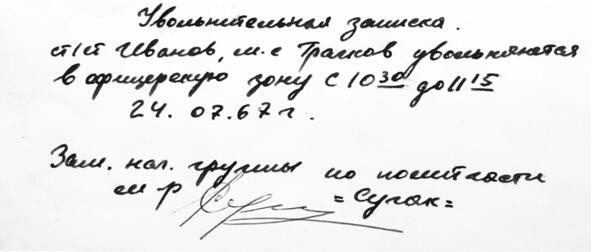 Увольнительная записка.
ст/ст Иванов, м.с Трачков увольняются
в офицерскую зону с 10 30 до 11 15
24. 07. 67 г.
Зам. нач. группы по политчасти
м-р =Сучок=